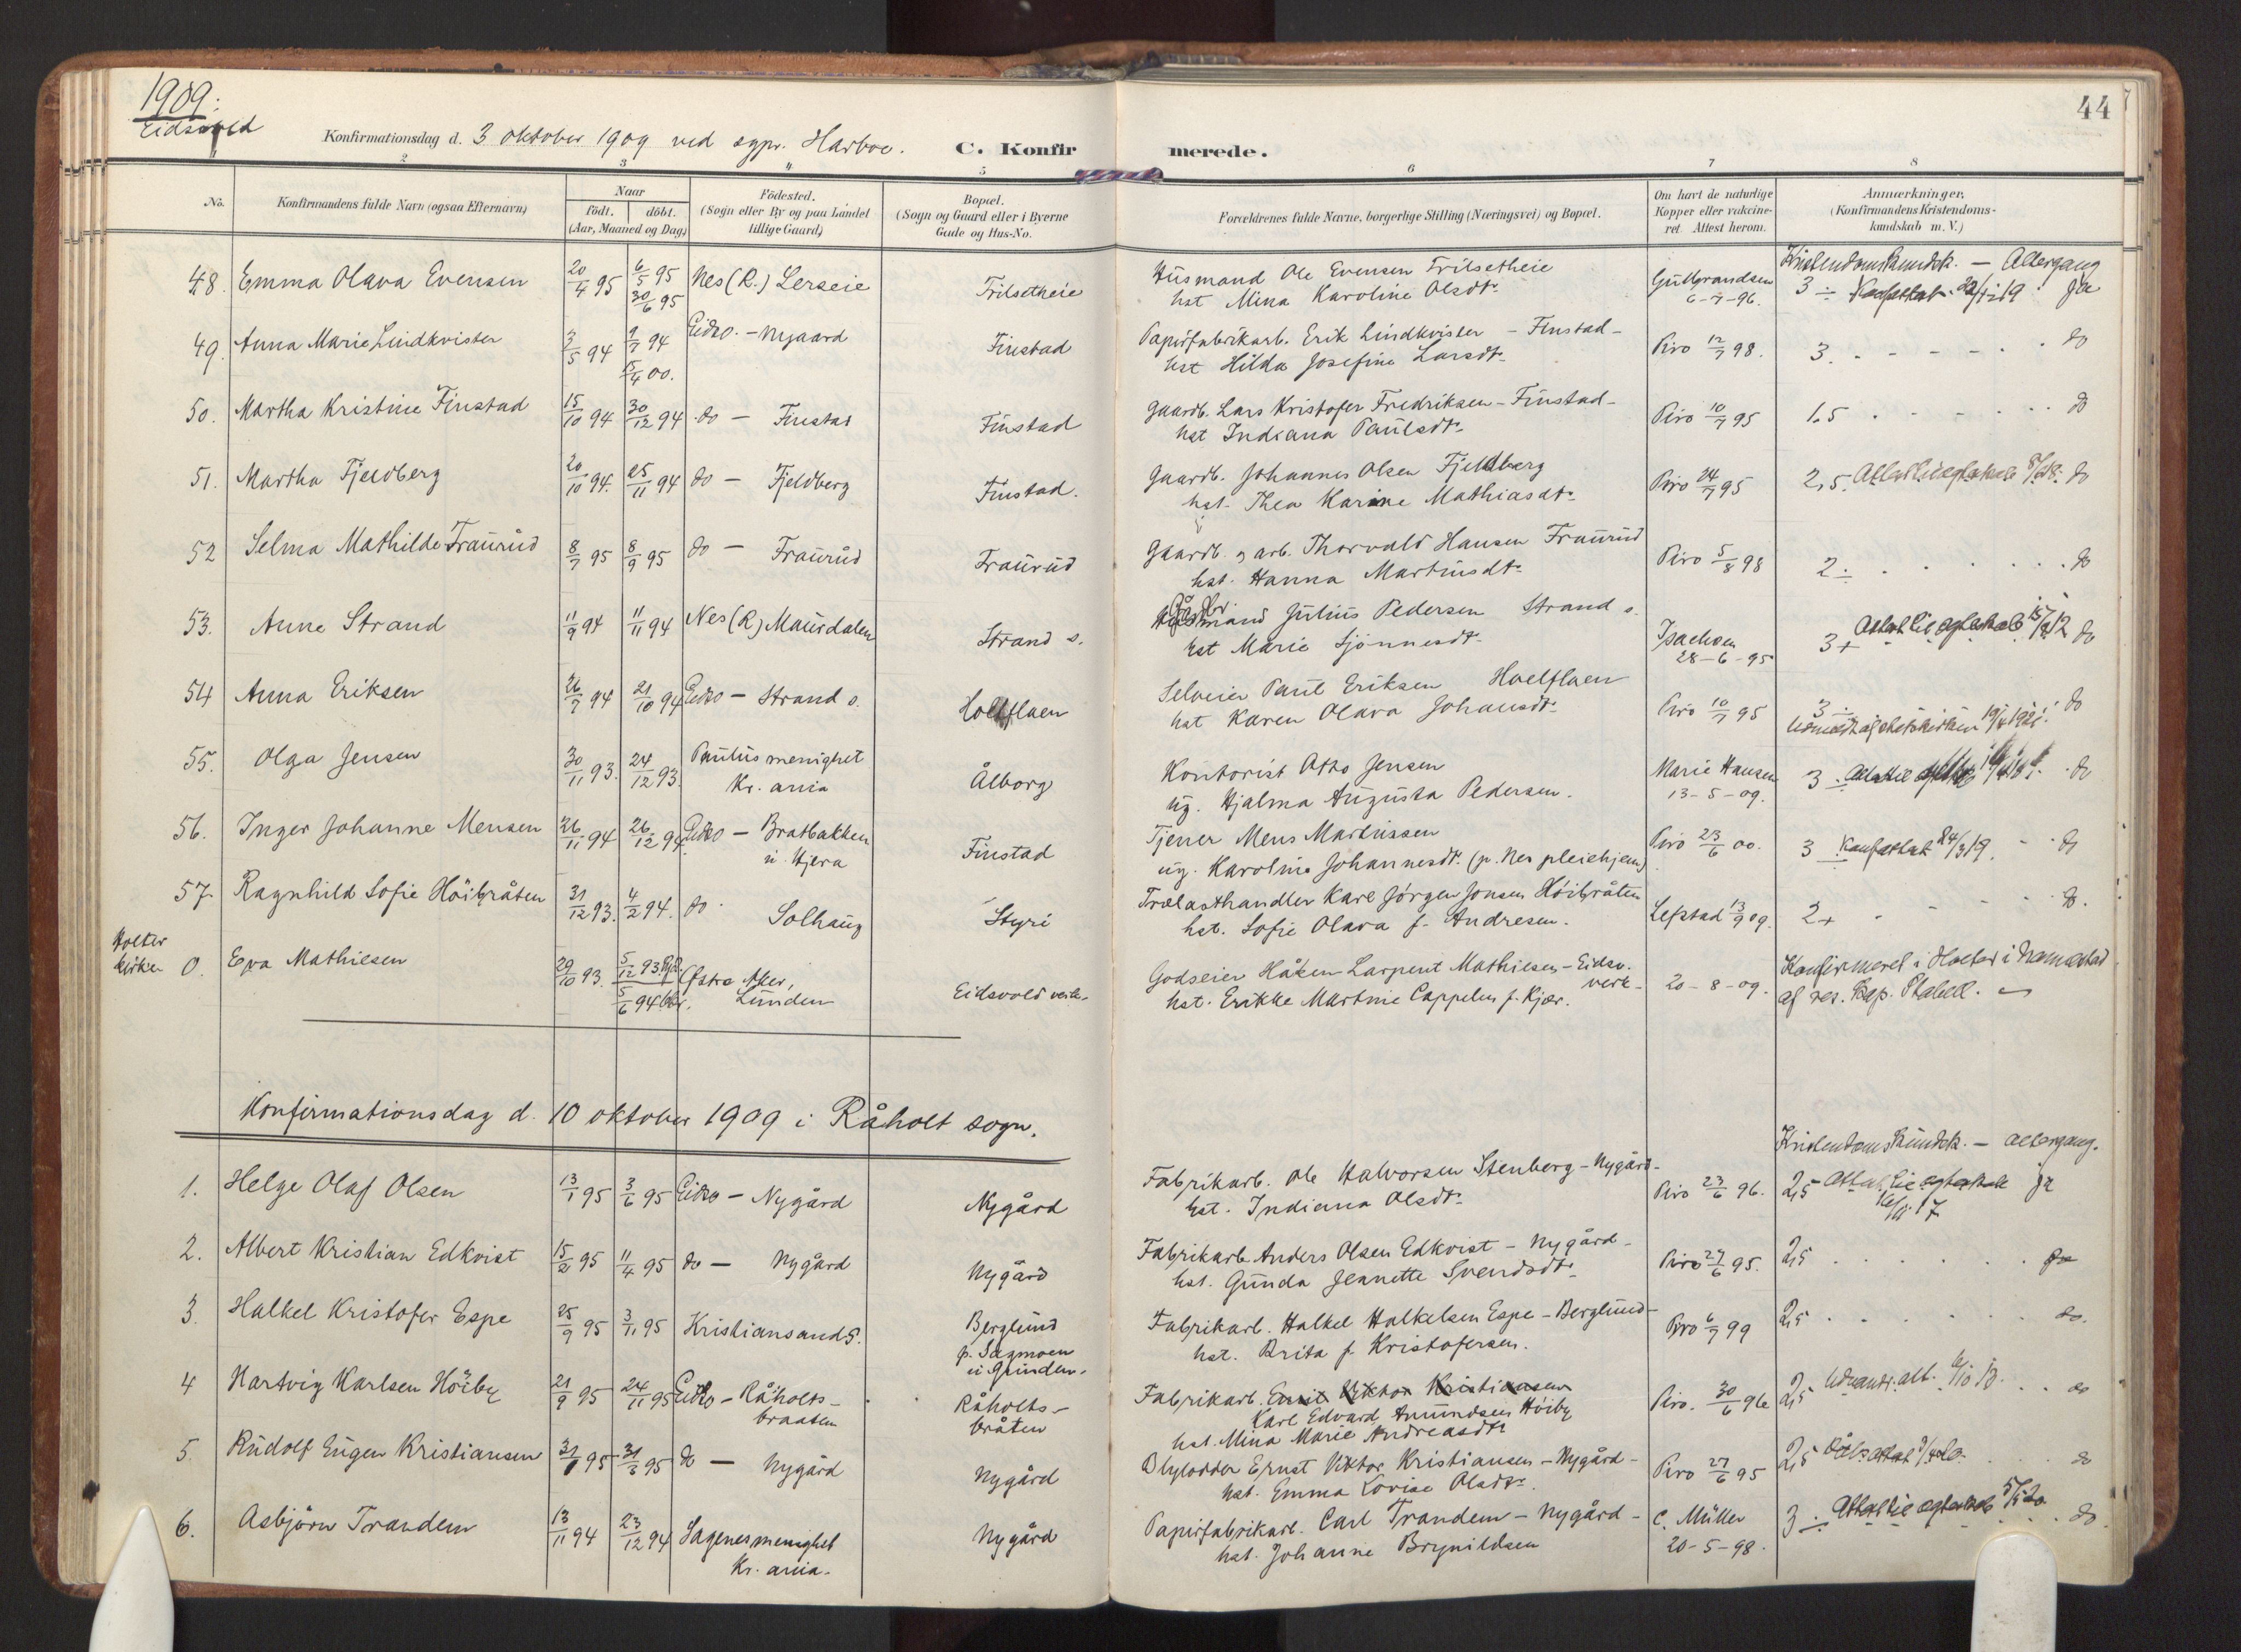 1909.
Eidsvold
44
Konfirmationsdag d. 3 oktober 1909 ved sgpr. Harboe. C. Konfirmerede.
2 3 4 5 6 7 8
No. Konfirmandens fulde Navn (ogsaa Efternavn) Naar födt. döbt. (Aar, Maaned og Dag) Födested. (Sogn eller By og paa Landet tillige Gaard) Bopæl. (Sogn og Gaard eller i Byerne Gade og Hus-No. Forældrenes fulde Navne, borgerlige Stilling (Næringsvei) og Bopæl. Om havt de naturlige Kopper eller vaccineret Attest herom. Anmærkninger, (Konfirmandens Kristendomskundskab m. V.)
Kristendomskundsk. — Altergang
48. Emma Olava Evensen 20/4 95 6/5 95 30/6 95 Nes (R.) Lerseie Trilsetheie Husmand Ole Evensen Trilsetheie
hst Mina Karoline Olsdt. Gulbrandsen 6-7-96. 3 ÷ Konfattest ja
49. Anna Marie Lindkvister 3/5 94 9/7 94 5/4 00. Eidsv. — Nygaard Finstad Papirfabrikarb. Erik Lindkvister — Finstad —
hst Hilda Josefine Larsdt. Piro 12/7 98. 3. do
50. Martha Kristine Finstad 15/10 94 30/12 94 do — Finstad Finstad Gaardb. Lars Kristofer Fredriksen — Finstad —
hst Indiana Paulsdt. Piro 10/7 95 1,5 do
51. Martha Fjeldberg 20/10 94. 25/11 94 do — Fjeldberg Finstad. Gaardb. Johannes Olsen Fjeldberg
hst. Thea Karine Mathiasdt. Piro 24/7 95 2,5. Attest til egteskab do
52 Selma Mathilde Fraurud 8/7 95 8/9 95 do — Fraurud Fraurud Gaardb. og arb. Thorvald Hansen Fraurud
hst. Hanna Martinsdt. Piro 5/8 98 2 ÷ do
53. Anne Strand 11/9 94 11/11 94 Nes (R) Maurdalen Strand s. Gårdbr. Julius Pedersen Strand s.
hst Marie Sjönnesdt. Isachsen 28-6-95 3+ Attest til egteskab do
54 Anna Eriksen 26/7 94 21/10 94 Eidsv — Strand s. Holtflaen Selveier Paul Eriksen Hoelflaen
hst Karen Olava Johansdt. Piro 10/7 95 3 ÷ Udmeldt af statskirken do
55. Olga Jensen 30/11 93. 24/12 93. Paulus menighet Kr. ania Ålborg Kontorist Otto Jensen
ug. Hjalma Augusta Pedersen. Marie Hansen 13-5-09. 3 ÷ do
56. Inger Johanne Mensen 26/11 94 26/12 94 Eidsv — Bratbakken u. Hjera Finstad Tjener Mens Martinssen
ug. Karoline Johannesdt. (p. Nes pleiehjem) Piro 23/6 00. 3 ÷ Konfattest 24/3 19. do
57. Ragnhild Sofie Höibråten 31/12 93. 4/2 94. do Solhaug Styri Trælasthandler Karl Jörgen Jonsen Höibråten
hst. Sofie Olava f. Andresen. Lefstad 13/9 09. 2+ do.
Holter kirke 0. Eva Mathiesen 29/10 93. 5/12 93. 5/6 94 Østre Aker, Linden Eidsvold verk. Godseier Håken Larpent Mathiesen — Eidsv. verk —
hst. Erikke Martine Cappelen f. Kjær. 20-8-09. Konfirmeret i Holter i Nannestad
af res. kap. Stabell.
Konfirmationsdag d. 10 oktober 1909 i Råholt sogn.
Kristendomskundsk. — altergang.
1. Helge Olaf Olsen 13/1 95 3/6 95 Eidsv — Nygård Nygård Fabrikarb. Ole Halvorsen Stenberg — Nygård —
hst. Indiana Olsdt. Piro 23/6 96. 2,5 Attest til egteskab ja
2. Albert Kristian Edkvist 15/2 95 11/4 95 do — Nygård Nygård Fabrikarb. Anders Olsen Edkvist — Nygård —
hst. Gunda Jeanette Svendsdt. Piro 27/6 95. 2,5 ja
3. Halkel Kristofer Espe 25/9 95 3/11 95 Kristiansand S. Berglund p. Sagmoen u. Grinden. Fabrikarb. Halkel Halkelsen Espe — Berglund —
hst. Brita f. Kristofersen. Piro 6/7 99 2,5 do.
4 Hartvig Karlsen Höiby 21/9 95 24/11 95 Eidsv — Råholts-braaten Råholts-bråten Fabrikarb. Ernst Viktor Kristiansen
Karl Edvard Amundsen Höiby
hst. Mina Marie Andreasdt. Piro. 30/6 96 2,5 Udvandr. att. do
5. Rudolf Eugen Kristiansen 31/1 95 31/3 95 do — Nygård Nygård Blylodder Ernst Viktor Kristiansen — Nygård —
hst. Emma Lovise Olsdt. Piro 27/6 95 2,5 Dåbsattest do
6. Asbjörn Trandem 13/11 94 23/12 94 Sagenes menighet Kr. ania. Nygård Papirfabrikarb. Carl Trandem — Nygård —
hst. Johanne Brynildsen C. Müller 20-5-98. 3 ÷ Attest til egteskab do.